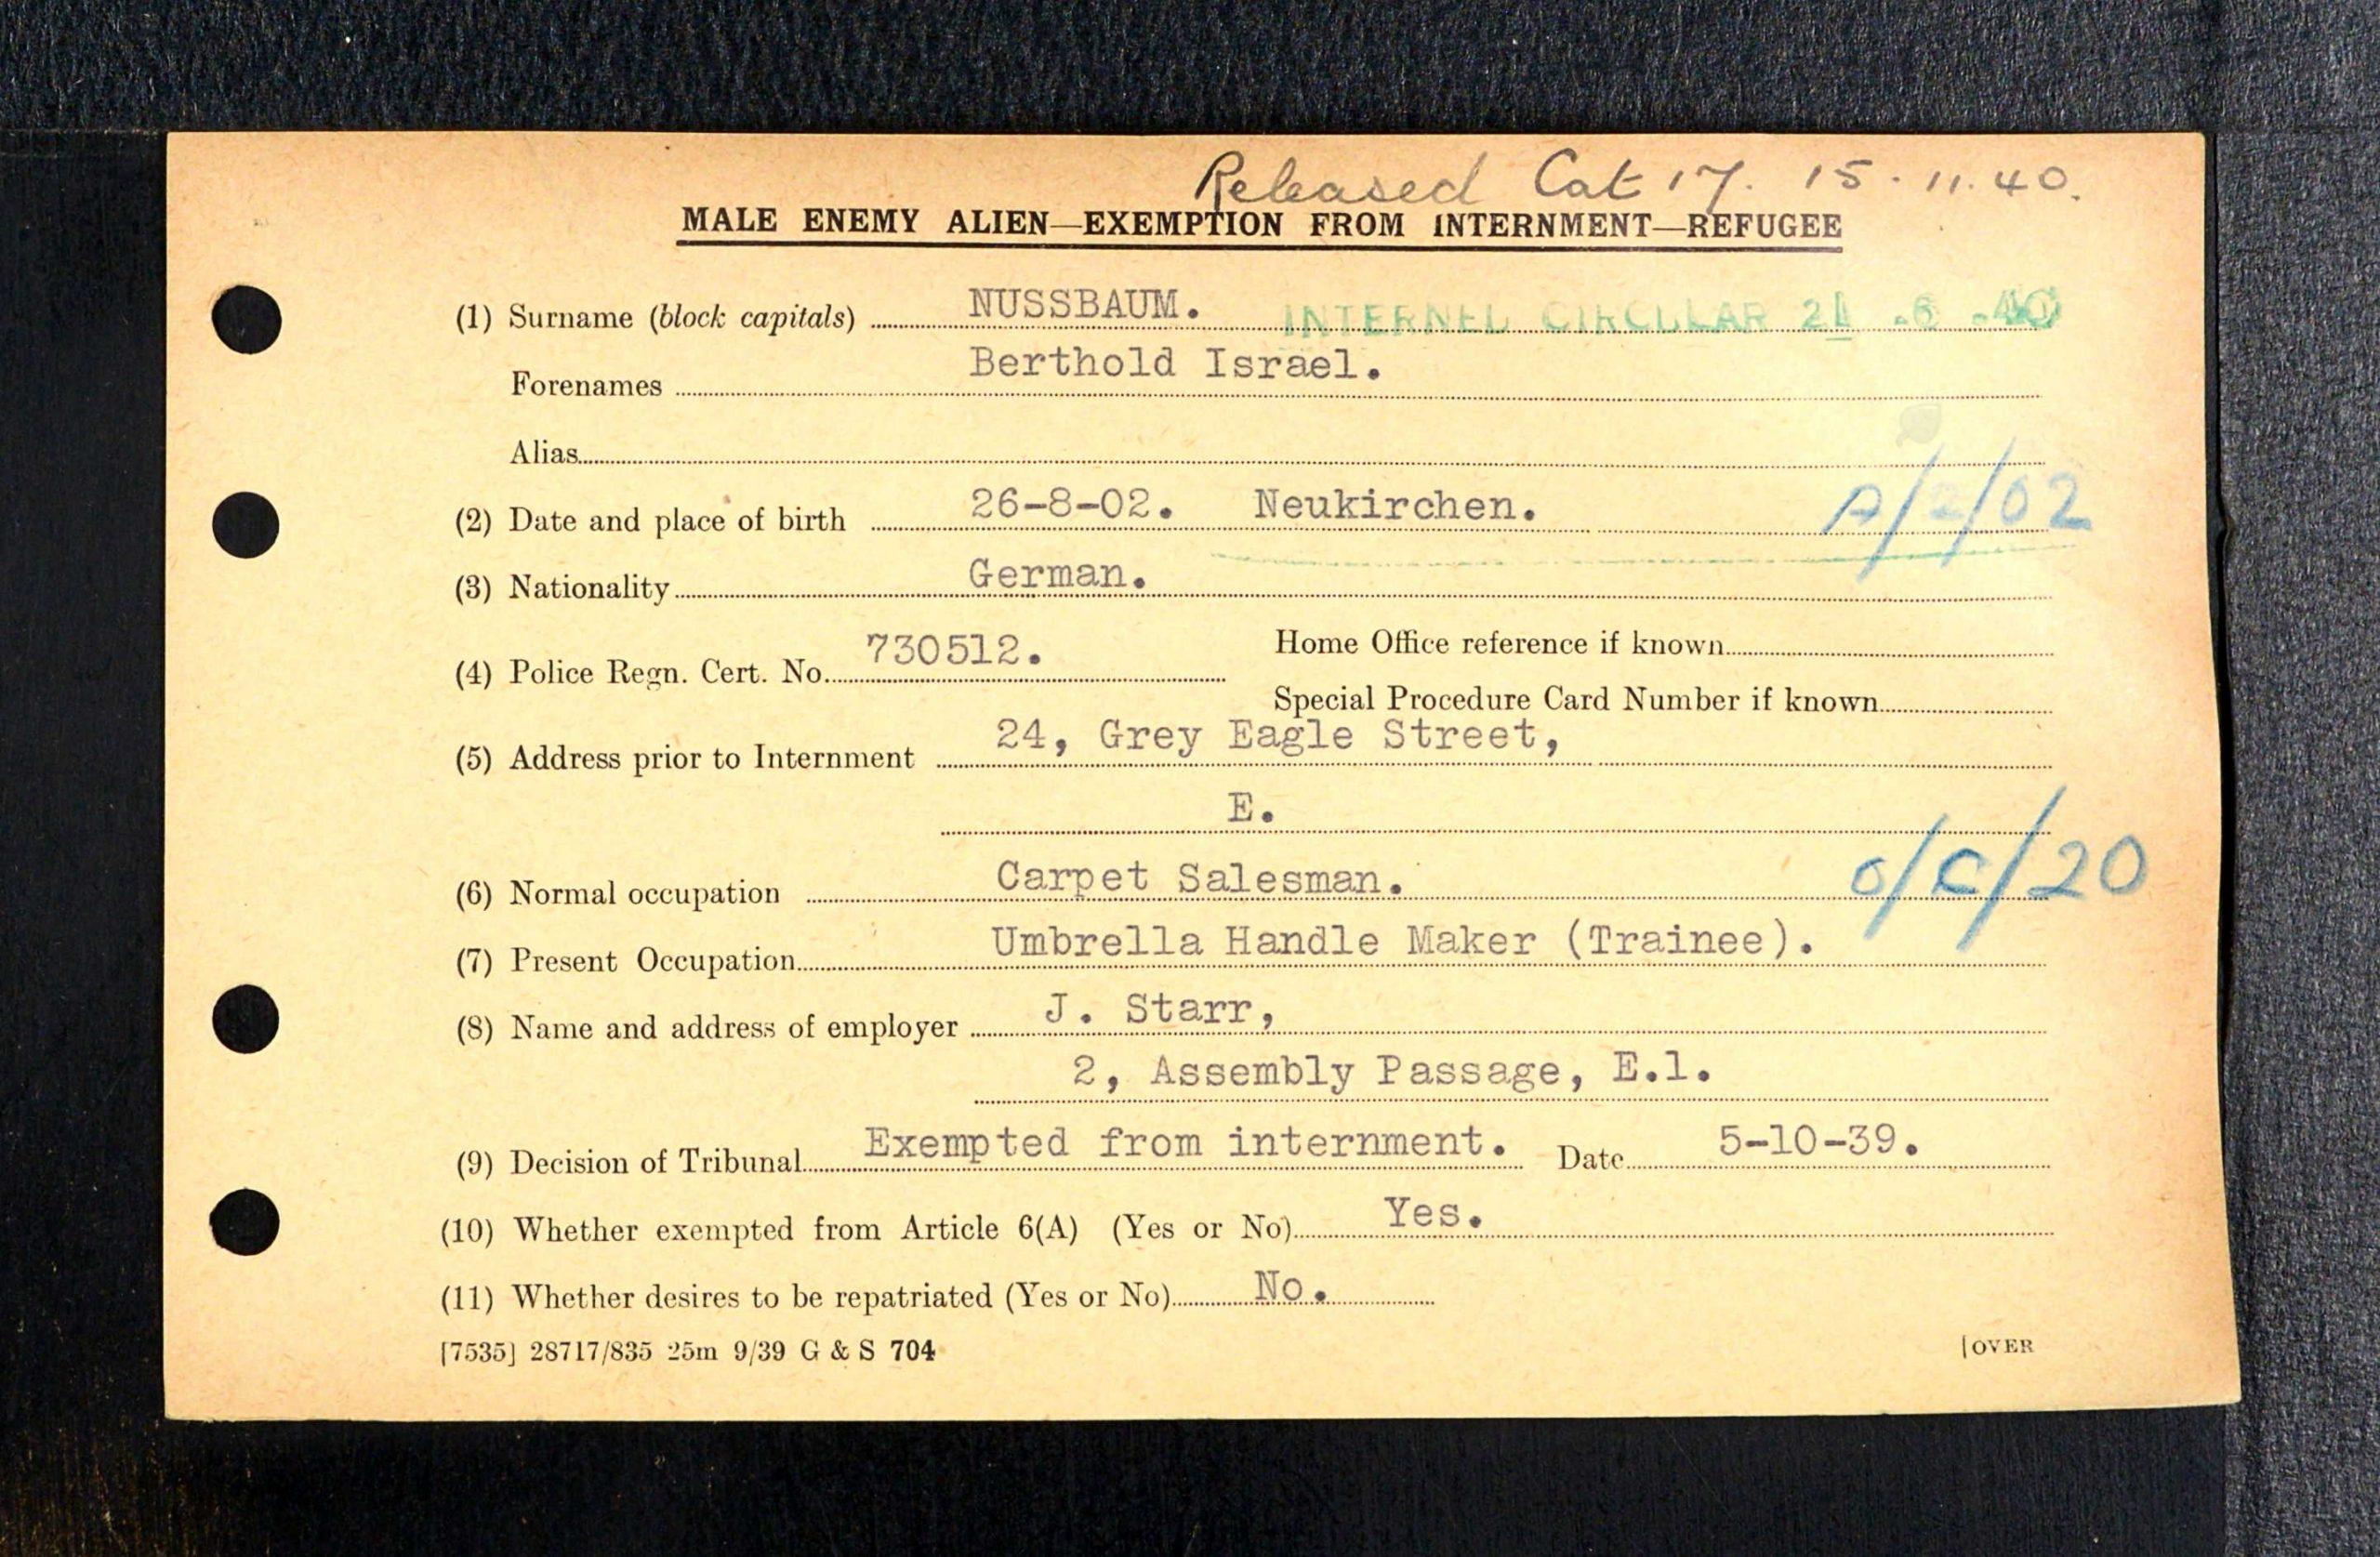 Released Cat 17. 15.11.40.
MALE ENEMY ALIEN—EXEMPTION FROM INTERNMENT—REFUGEE
(1) Surname (block capitals) NUSSBAUM. INTERNED CIRCULAR 21 .6 .40
Forenames Berthold Israel.
Alias
(2) Date and place of birth 26-8-02. Neukirchen. A/2/02
(3) Nationality German.
(4) Police Regn. Cert. No. 730512. Home Office reference if known
Special Procedure Card Number if known
(5) Address prior to Internment 24, Grey Eagle Street,
E.
(6) Normal occupation Carpet Salesman. O/C/20
(7) Present Occupation Umbrella Handle Maker (Trainee).
(8) Name and address of employer J. Starr,
2, Assembly Passage, E.1.
(9) Decision of Tribunal Exempted from internment. Date 5-10-39.
(10) Whether exempted from Article 6(A) (Yes or No) Yes.
(11) Whether desires to be repatriated (Yes or No) No.
[7535] 28717/835 25m 9/39 G & S 704 [OVER